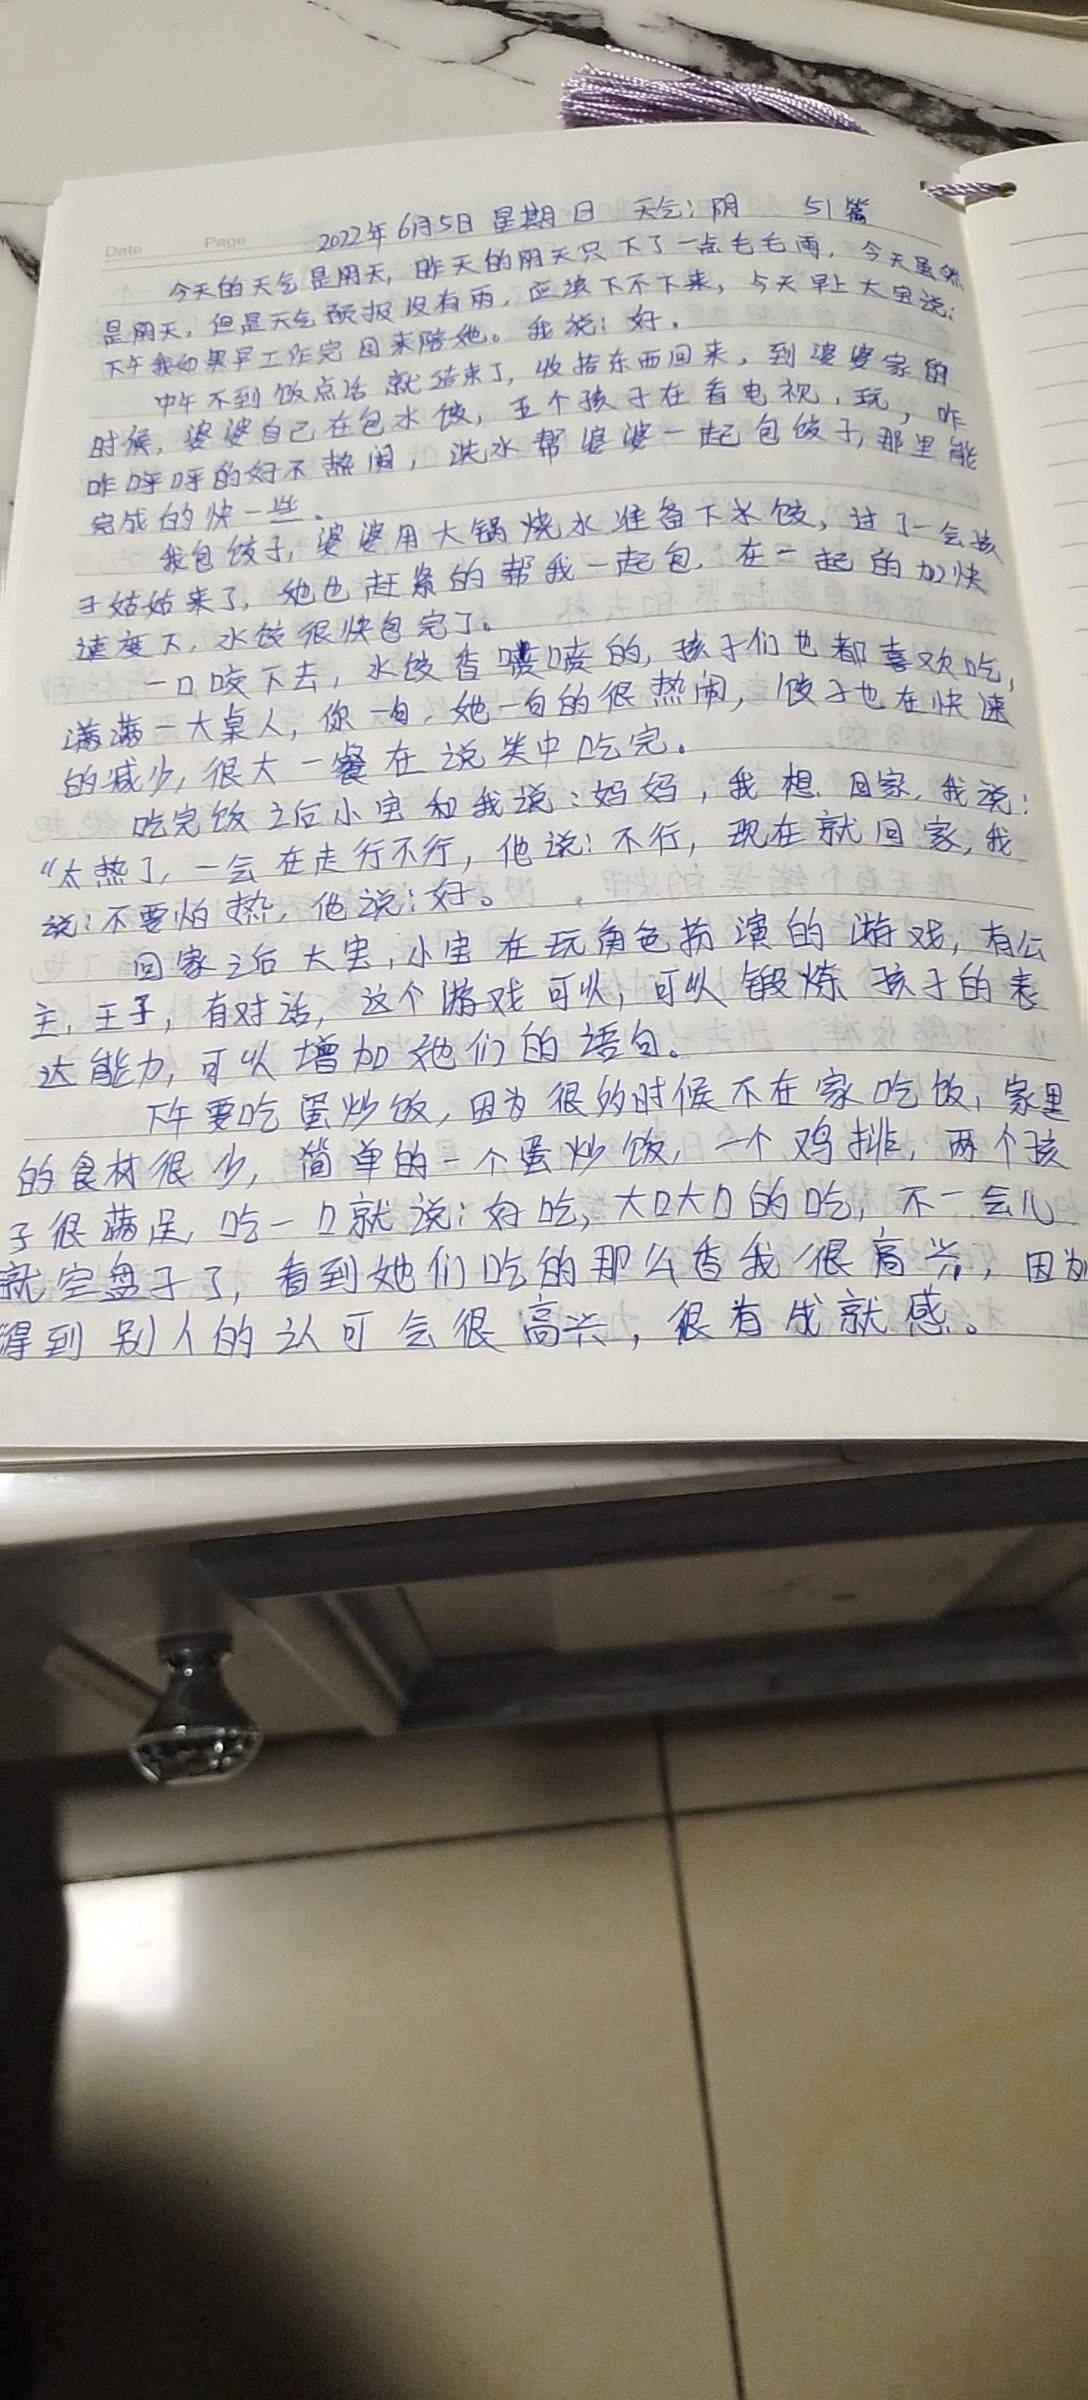 Date Page 2022年6月5日 星期日 天气:阴 51篇
今天的天气是阴天，昨天的阴天只下了一点毛毛雨，今天虽然
是阴天，但是天气预报没有雨，应该下不下来，今天早上大宝说：
下午我如果早工作完回来陪她。我说：好，
中午不到饭点活就结束了，收拾东西回来，到婆婆家的
时候，婆婆自己在包水饺，五个孩子在看电视，玩，咋
咋呼呼的好不热闹，洗水帮婆婆一起包饺子，那里能
完成的快一些、
我包饺子，婆婆用大锅烧水准备下水饺，过了一会孩
子姑姑来了，她也赶紧的帮我一起包，在一起的加快
速度下，水饺很快包完了。
一口咬下去，水饺香喷喷的，孩子们也都喜欢吃，
满满一大桌人，你一句，她一句的很热闹，饺子也在快速
的减少，很大一餐在说笑中吃完。
吃完饭之后小宝和我说：妈妈，我想回家，我说：
“太热了，一会在走行不行，他说：不行，现在就回家，我
说：不要怕热，他说：好。
回家之后大宝，小宝在玩角色扮演的游戏，有公
主，王子，有对话，这个游戏可以，可以锻炼孩子的表
达能力，可以增加她们的语句。
下午要吃蛋炒饭，因为很多时候不在家吃饭，家里
的食材很少，简单的一个蛋炒饭，一个鸡排，两个孩
子很满足，吃一口就说：好吃，大口大口的吃，不一会儿
就空盘子了，看到她们吃的那么香我很高兴，因为
得到别人的认可会很高兴，很有成就感。